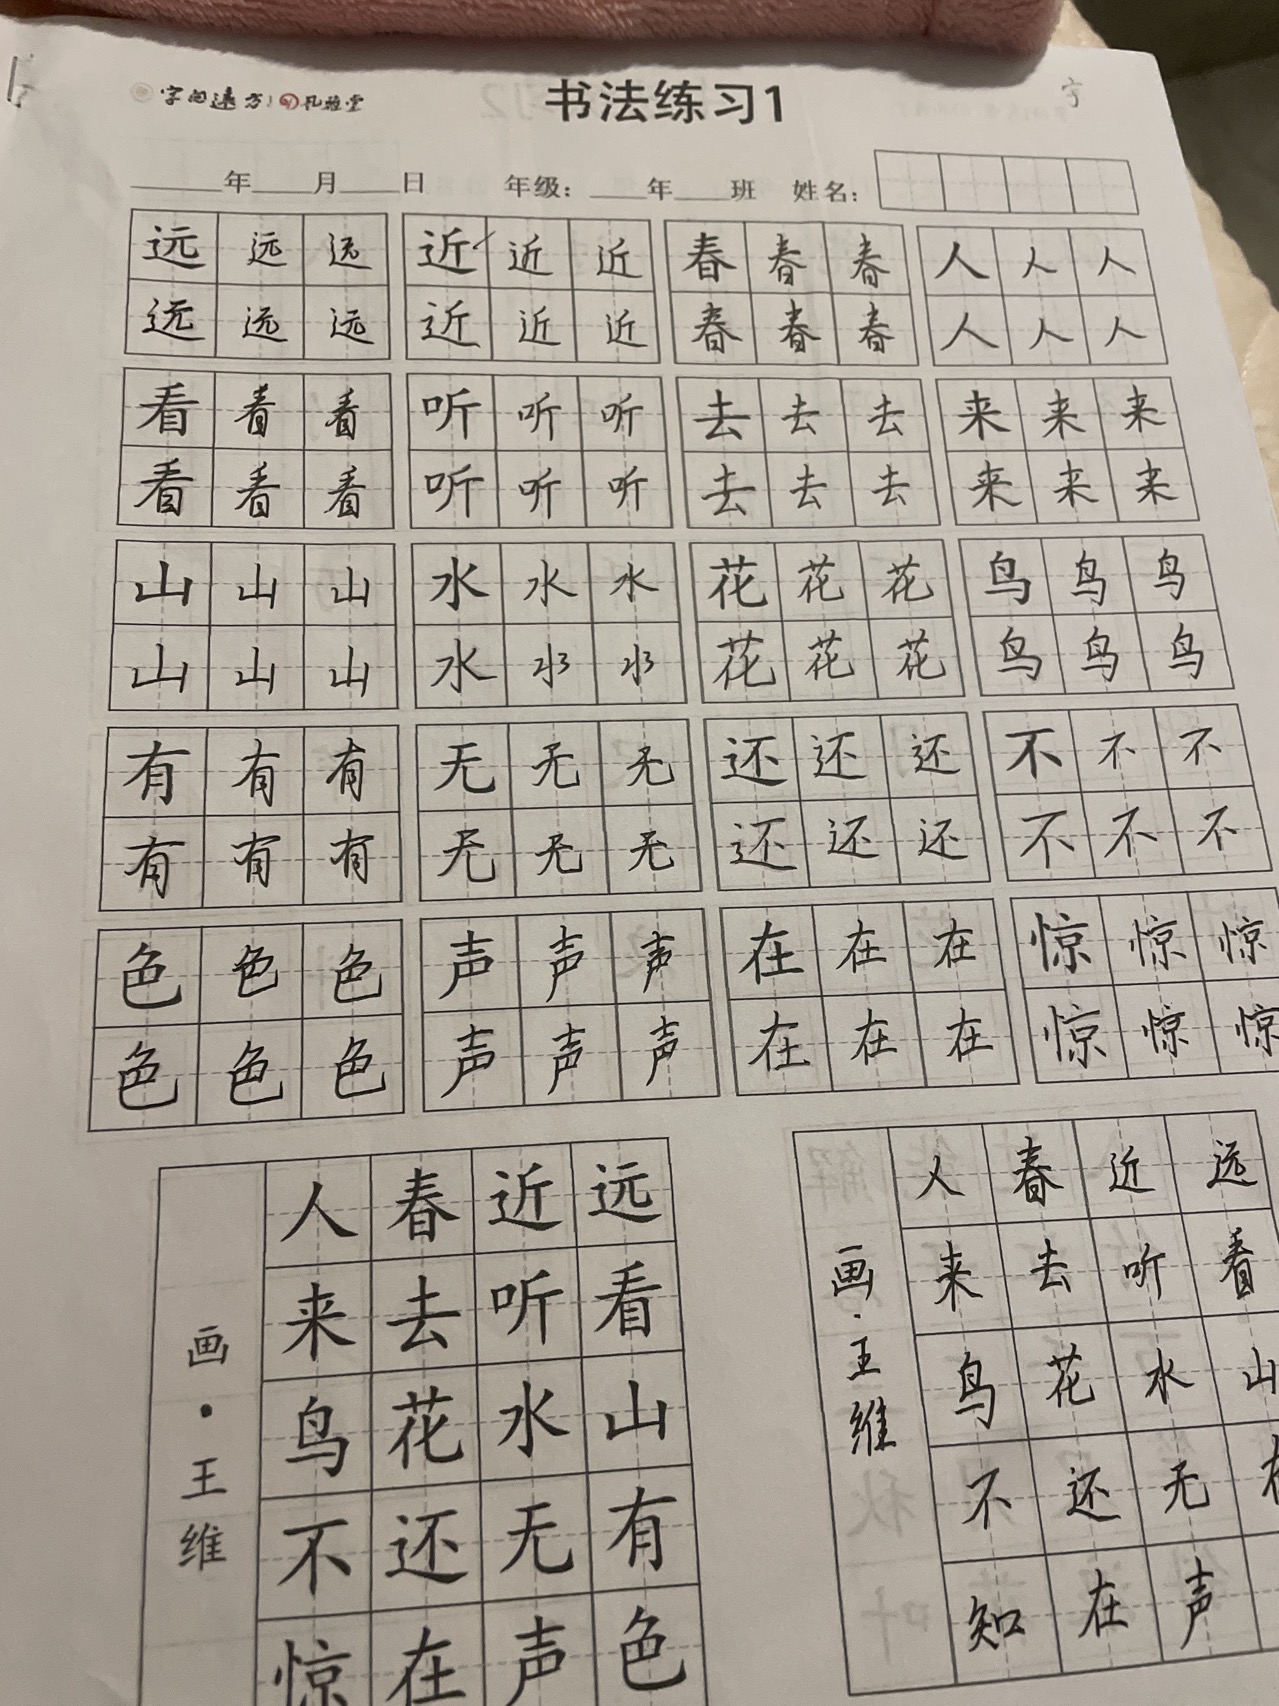 字向远方 孔雅堂
书法练习1
字
年 月 日 年级: 年 班 姓名:
远远远 近近近 春春春 人人人
远远远 近近近 春春春 人人人
看看看 听听听 去去去 来来来
看看看 听听听 去去去 来来来
山山山 水水水 花花花 鸟鸟鸟
山山山 水水水 花花花 鸟鸟鸟
有有有 无无无 还还还 不不不
有有有 无无无 还还还 不不不
色色色 声声声 在在在 惊惊惊
色色色 声声声 在在在 惊惊惊
远看山有色
近听水无声
春去花还在
人来鸟不惊
画·王维
远看山
近听水无声
春去花还在
人来鸟不知
画·王维